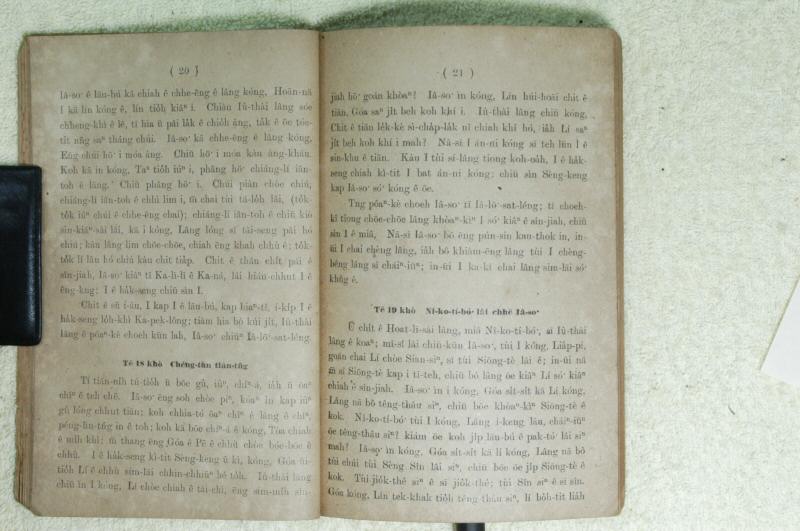 ( 20 )
Iâ-so͘ ê lāu-bú kā chiah ê chhe-ēng ê lâng kóng, Hoān-nā
I kā lín kóng ê, lín tio̍h kiâⁿ i. Chiàu Iû-thài lâng sóe
chheng-khì ê lē, tī hia ū pái la̍k ê chio̍h àng, ta̍k ê ōe tóe-
tit nn̄g saⁿ tháng chúi. Iâ-so͘ kā chhe-ēng ê lâng kóng,
Ēng chúi hō͘ i móa àng. Chiū hō͘ i móa kàu àng-kháu.
Koh kā in kóng, Taⁿ tio̍h iúⁿ i, phâng hō͘ chiáng-lí iân-
toh ê lâng. Chiū phâng hō͘ i. Chúi piàn chòe chiú,
chiáng-lí iân-toh ê chhì lim i, m̄ chai tùi tá-lo̍h lâi, (to̍k-
to̍k iúⁿ chúi ê chhe-ēng chai); chiáng-lí iân-toh ê chiū kiò
sin-kiáⁿ-sài lâi, kā i kóng, Lâng lóng sī tāi-seng pâi hó
chiú; kàu lâng lim chōe-chōe, chiah ēng khah chhù ê; to̍k-
to̍k lí lâu hó chiú kàu chit tia̍p. Chit ê thâu chi̍t pái ê
sîn-jiah, Iâ-so͘ kiâⁿ tī Ka-lī-lī ê Ka-ná, lâi hián-chhut I ê
êng-kng; I ê ha̍k-seng chiū sìn I.
Chit ê sū í-āu, I kap I ê lāu-bú, kap hiaⁿ-tī, í-ki̍p I ê
ha̍k-seng lo̍h-khì Ka-pek-lông; tiàm hia bô kúi ji̍t, Iû-thài
lâng ê pōaⁿ-kè choeh kūn lah, Iâ-so͘ chiūⁿ Iâ-lō͘-sat-léng.
Tē 18 khò Chéng-tùn tiān-tn̂g
Tī tiān-nih tú-tio̍h ū bōe gû, iûⁿ, chíⁿ-á, ia̍h ū ōaⁿ
chîⁿ ê teh chē. Iâ-so͘ ēng soh chòe piⁿ, kóaⁿ in kap iûⁿ
gû lóng chhut tiān; koh chhia-tó ōaⁿ chîⁿ ê lâng ê chîⁿ,
péng-lìn-tńg in ê toh; koh kā bōe chíⁿ-á ê kóng, Tòa chiah
ê mi̍h khì; m̄ thang ēng Góa ê Pē ê chhù chòe bóe-bōe ê
chhù. I ê ha̍k-seng kì-tit Sèng-keng ū kì, kóng, Góa ūi-
tio̍h Lí ê chhù sim-lāi chhin-chhiūⁿ hé to̍h. Iû-thài lâng
chiū ìn I kóng, Lí chòe chiah ê tāi-chì, ēng sím-mi̍h sîn-
( 21 )
jiah hō͘ goán khòaⁿ? Iâ-so͘ ìn kóng, Lín húi-hoāi chit ê
tiān, Góa saⁿ ji̍t beh koh khí i. Iû-thài lâng chiū kóng,
Chit ê tiān le̍k-kè sì-cha̍p-la̍k nî chiah khí hó, ia̍h Lí saⁿ
ji̍t beh koh khí i mah? Nā-sī I án-ni kóng sī teh lūn I ê
sin-khu ê tiān. Kàu I tùi sí-lâng tiong koh-oa̍h, I ê ha̍k-
seng chiah kì-tit I bat án-ni kóng; chiū sìn Sèng-keng
kap Iâ-so͘ só͘ kóng ê ōe.
Tng pōaⁿ-kè choeh Iâ-so͘ tī Iâ-lō͘-sat-léng; tī choeh-
kî tiong chōe-chōe lâng khòaⁿ-kìⁿ I só͘ kiâⁿ ê sîn-jiah, chiū
sìn I ê miâ, Nā-sī Iâ-so͘ bô ēng pún-sin kau-thok in, in-
ūi I chai chèng lâng, ia̍h bô khiàm-ēng lâng tùi I chèng-
bêng lâng sī cháiⁿ-iūⁿ; in-ūi I ka-kī chai lâng sim-lāi só͘
khǹg ê.
Tē 19 khò Nî-ko-tí-bó͘ lâi chhē Iâ-so͘
Ū chi̍t ê Hoat-lī-sài lâng, miâ Nî-ko-tí-bó͘, sī Iû-thài
lâng ê koaⁿ; mî-sî lâi chiū-kūn Iâ-so͘, tùi I kóng, Lia̍p-pí,
goán chai Lí chòe Sian-siⁿ, sī tùi Siōng-tè lâi ê; in-ūi nā
m̄ sī Siōng-tè kap i tī-teh, chiū bô lâng ōe kiâⁿ Lí só͘ kiâⁿ
chiah ê sîn-jiah. Iâ-so͘ ìn i kóng, Góa si̍t-si̍t kā Lí kóng,
Lâng nā bô têng-thâu siⁿ, chiū bōe khòaⁿ-kìⁿ Siōng-tè ê
kok. Nî-ko-tí-bó͘ tùi I kóng, Lâng í-keng lāu, cháiⁿ-iūⁿ
ōe têng-thâu siⁿ? kiám ōe koh ji̍p lāu-bú ê pak-tó͘ lâi siⁿ
mah? Iâ-so͘ ìn kóng, Góa si̍t-si̍t kā lí kóng, Lâng nā bô
tùi chúi tùi Sèng Sîn lâi siⁿ, chiū bōe ōe ji̍p Siōng-tè ê
kok. Tùi jio̍k-thé siⁿ ê sī jio̍k-thé; tùi Sîn siⁿ ê sī sîn.
Góa kóng, Lín tek-khak tio̍h têng-thâu siⁿ, lí bo̍h-tit lia̍h